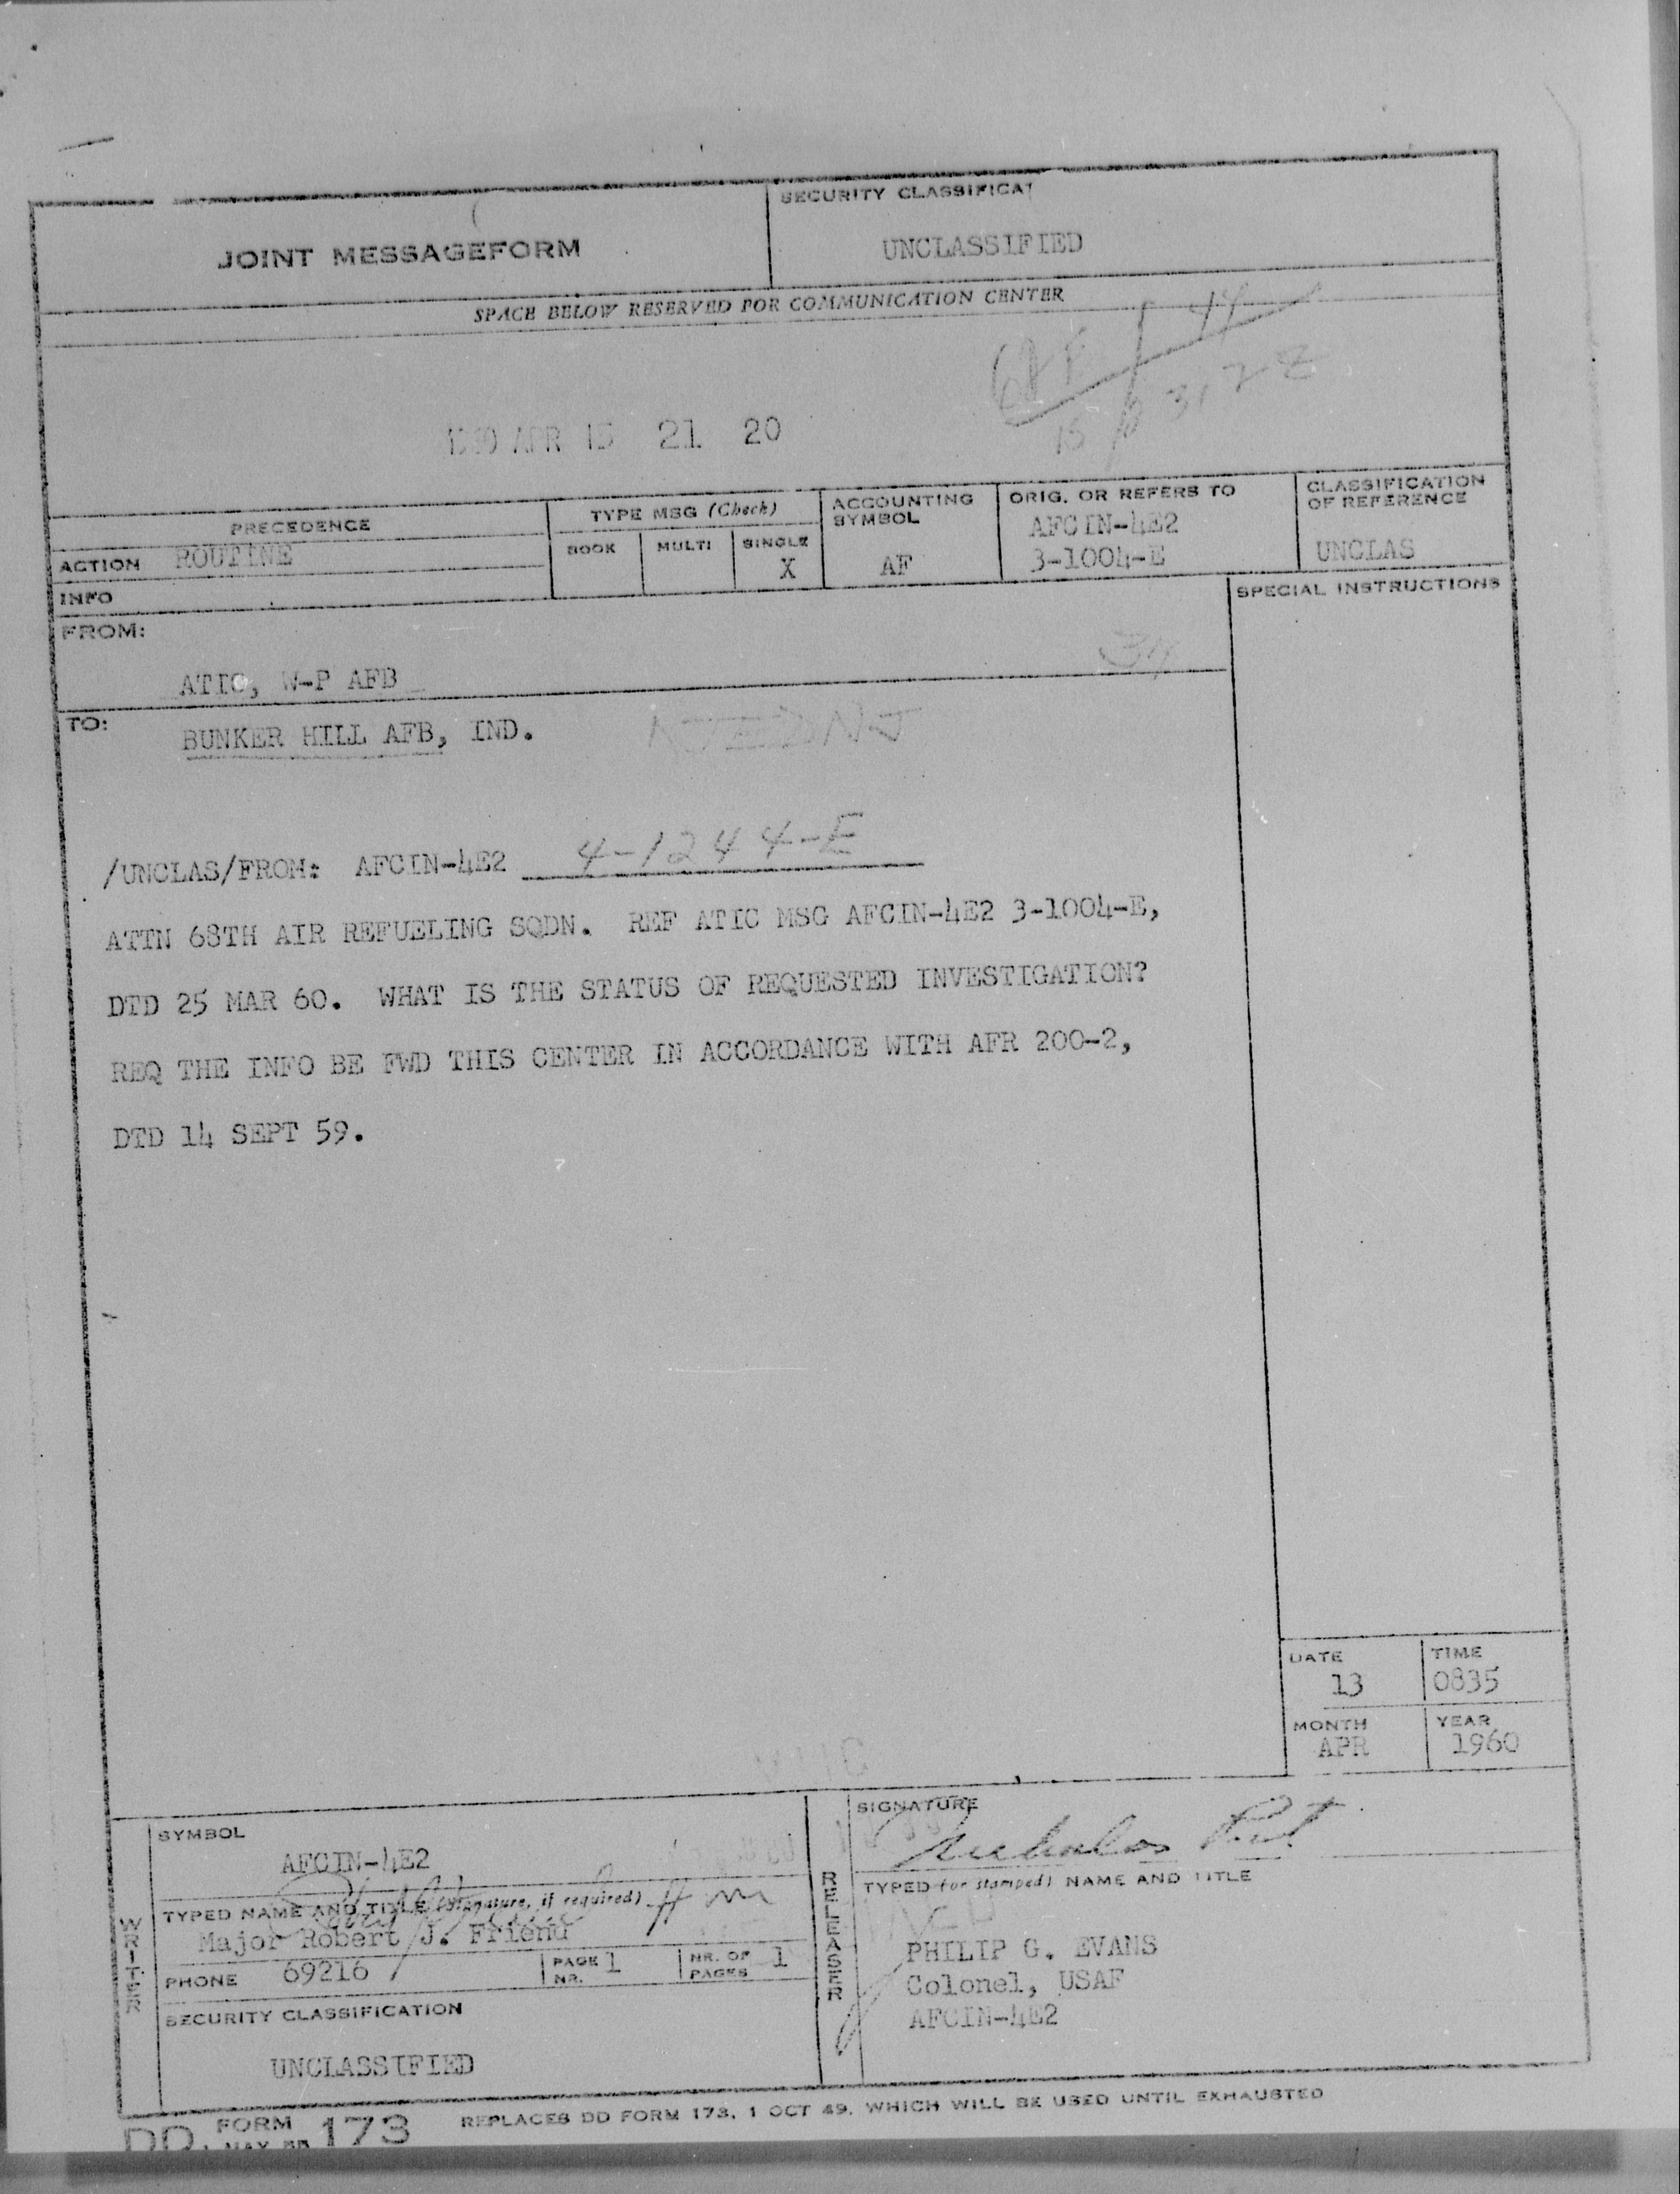 SECURITY CLASSIFICAT
JOINT MESSAGEFORM
UNCLASSIFIED
SPACE BELOW RESERVED FOR COMMUNICATION CENTER
APR 21 20
PRECEDENCE
TYPE MSG (Check)
ACCOUNTING SYMBOL
ORIG. OR REFERS TO
CLASSIFICATION OF REFERENCE
ACTION ROUTINE
BOOK MULTI SINGLE
X
AF
AFCIN-4E2
3-1004-E
UNCLAS
INFO
SPECIAL INSTRUCTIONS
FROM:
ATIC, W-P AFB
TO:
BUNKER HILL AFB, IND.
/UNCLAS/FROM: AFCIN-4E2 4-1244-E
ATTN 68TH AIR REFUELING SQDN. REF ATIC MSG AFCIN-4E2 3-1004-E,
DTD 25 MAR 60. WHAT IS THE STATUS OF REQUESTED INVESTIGATION?
REQ THE INFO BE FWD THIS CENTER IN ACCORDANCE WITH AFR 200-2,
DTD 14 SEPT 59.
DATE TIME
13 0835
MONTH YEAR
APR 1960
WRITER
SYMBOL
AFCIN-4E2
TYPED NAME AND TITLE (Signature, if required)
Major Robert J. Friend
PHONE 69216
PAGE NR. 1
NR. OF PAGES 1
SECURITY CLASSIFICATION
UNCLASSIFIED
RELEASER
SIGNATURE
TYPED (or stamped) NAME AND TITLE
PHILIP G. EVANS
Colonel, USAF
AFCIN-4E2
DD FORM 173 REPLACES DD FORM 173, 1 OCT 49, WHICH WILL BE USED UNTIL EXHAUSTED